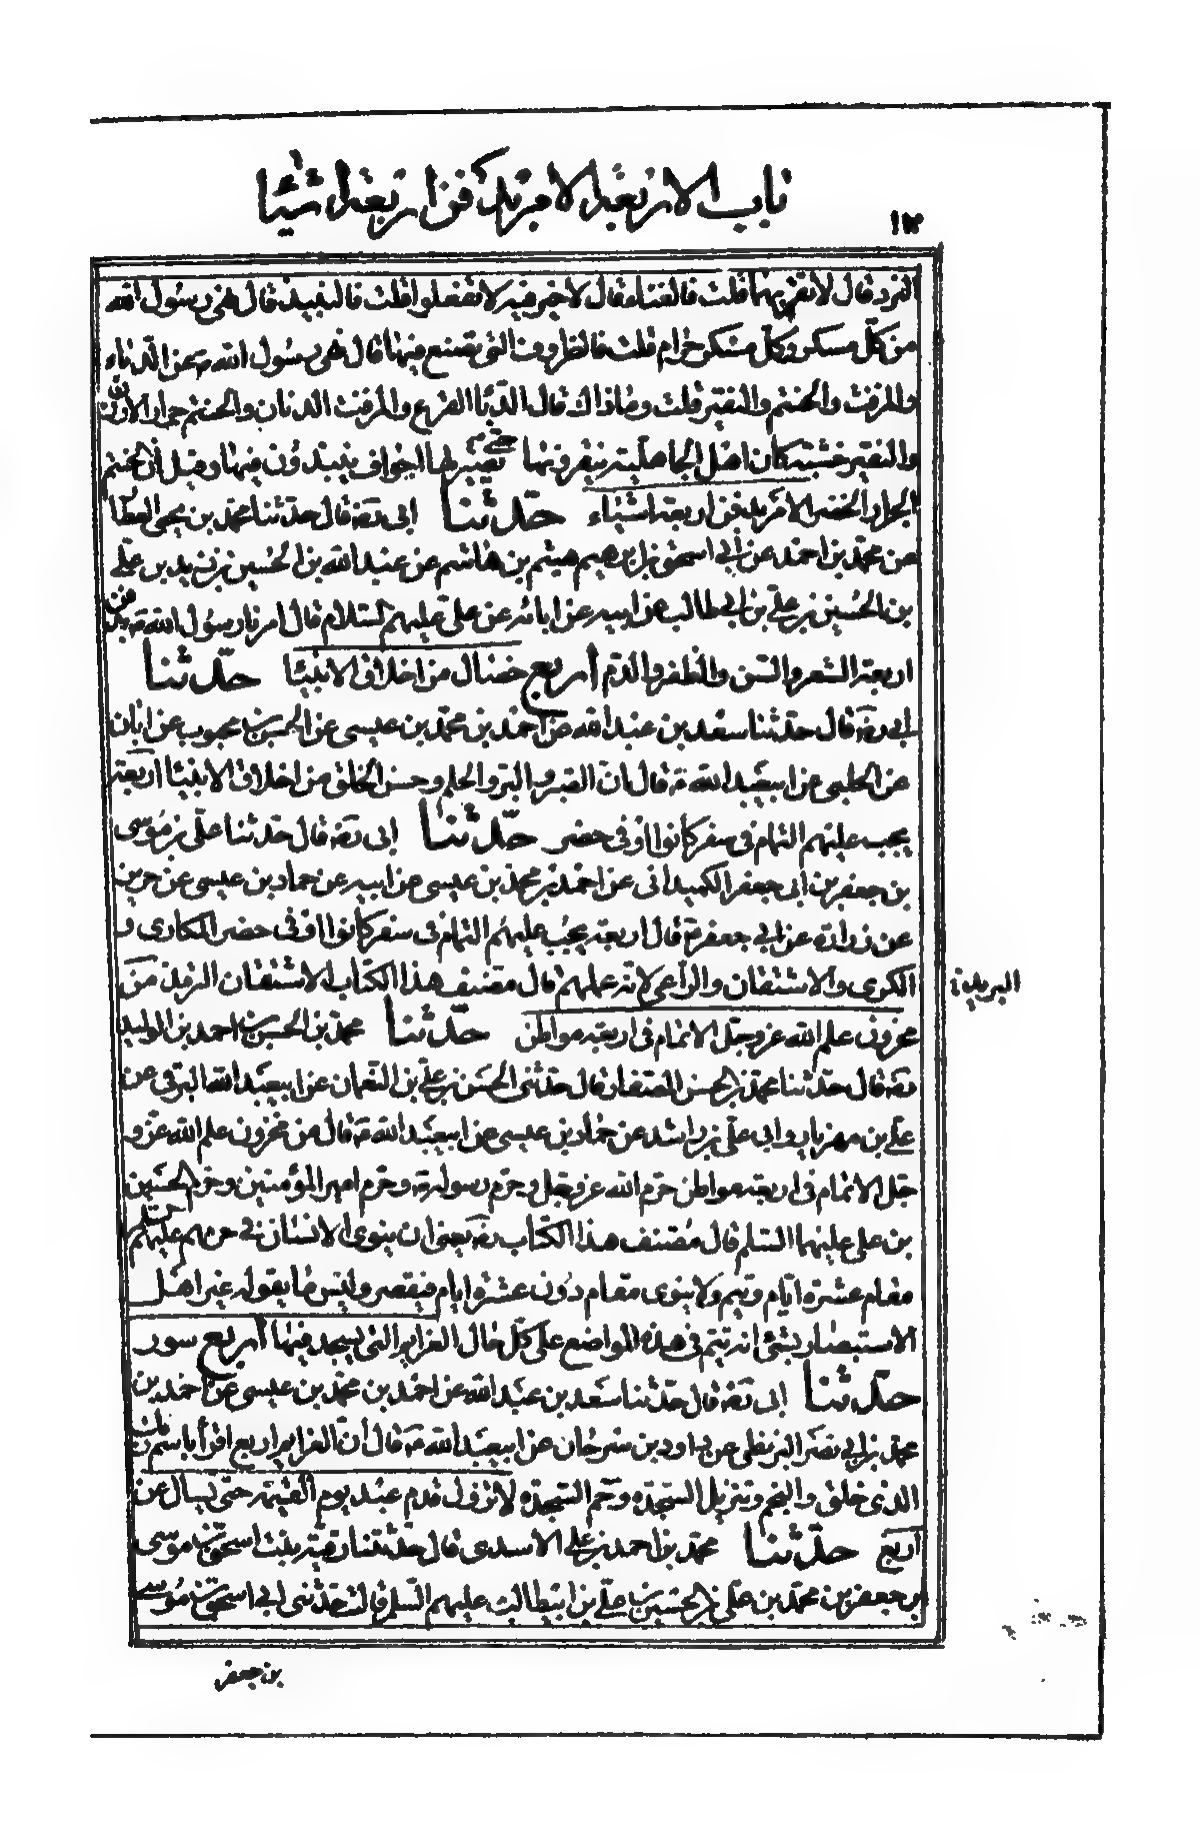 باب الاربعة الامر بدفن اربعة اشیاء
۱۲
النرد قال لا تقربهما قلت فالغناء قال لا خیر فیه لا تفعلوا قلت فالنبیذ قال نهی رسول الله
من کل مسکر وکل مسکر حرام قلت فالظروف التی تصنع فیها قال نهی رسول الله ص عن الدباء
والمزفت والحنتم والنقیر قلت وما ذاک قال الدبا القرع والمزفت الدنان والحنتم جرار الاردن
والنقیر خشبة کان اهل الجاهلیة ینقرونها حتی تصیر لها اجواف ینبذون فیها وقیل ان الحنتم
الجرار الخضر الامر بدفن اربعة اشیاء حدثنا ابی ره قال حدثنا محمد بن یحیی العطا
عن محمد بن احمد عن ابی اسحق ابرهیم هیثم بن هاشم عن عبد الله بن الحسین بن زید بن علی
بن الحسین بن علی بن ابی طالب عن ابیه عن ابائه عن علی علیهم السلام قال امرنا رسول الله ص بدفن
اربعة الشعر والسن والظفر والدم أربع خصال من اخلاق الانبیا حدثنا
ابی ره قال حدثنا سعد بن عبد الله عن احمد بن محمد بن عیسی عن الحسن بن محبوب عن ابان
عن الحلبی عن ابیعبد الله ع قال ان الصبر والبر والحلم وحسن الخلق من اخلاق الانبیا اربعة
یجب علیهم التمام فی سفر کانوا او فی حضر حدثنا ابی ره قال حدثنا علی بن موسی
بن جعفر بن ابی جعفر الکمیدانی عن احمد بن محمد بن عیسی عن ابیه عن حماد بن عیسی عن حریز
عن زرارة عن ابی جعفر ع قال اربعة یجب علیهم التمام فی سفر کانوا او فی حضر المکاری و
الکری والاشتقان والراعی لانه عملهم قال مصنف هذا الکتاب الاشتقان البرید من
البرید
مخزون علم الله عز وجل الاتمام فی اربعة مواطن حدثنا محمد بن الحسن بن احمد بن الولید
ره قال حدثنا محمد بن الحسن الصفار قال حدثنی الحسن بن علی بن النعمان عن ابیعبد الله البرقی عن
علی بن مهزیار وابی علی بن راشد عن حماد بن عیسی عن ابیعبد الله ع قال من مخزون علم الله عز و
جل الاتمام فی اربعة مواطن حرم الله عز وجل وحرم رسوله ص وحرم امیر المؤمنین وحرم الحسین
بن علی علیهما السلم قال مصنف هذا الکتاب ره یعنی ان ینوی الانسان فی حرمهم علیهم السلم
مقام عشرة ایام ویتم ولا ینوی مقام دون عشرة ایام فیقصر ولیس ما یقوله غیر اهل
الاستبصار بشئ انه یتم فی هذه المواضع علی کل حال العزایم التی یسجد فیها أربع سور
حدثنا ابی ره قال حدثنا سعد بن عبد الله عن احمد بن محمد بن عیسی عن احمد بن
محمد بن ابی نصر البزنطی عن داود بن سرحان عن ابیعبد الله ع قال ان العزایم اربع اقرأ باسم ربک
الذی خلق والنجم وتنزیل السجدة وحم السجدة لا تزول قدم عبد یوم القیمة حتی یسال عن
أربع حدثنا محمد بن احمد بن علی الاسدی قال حدثتنا رقیة بنت اسحق بن موسی
بن جعفر بن محمد بن علی بن الحسین بن علی بن ابیطالب علیهم السلم قالت حدثنی ابی اسحق بن موسی
بن جعفر